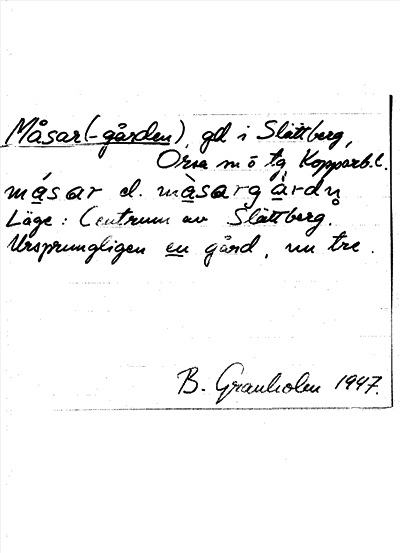 Måsar(-gården), gd i Slättberg,
Orsa sn o tg Kopparb. l.
másar el. màsargàrdn̥
Läge: Centrum av Slättberg.
Ursprungligen en gård, nu tre.
B. Granholm 1947.